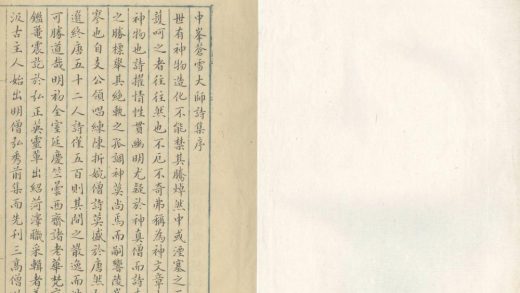 中峯蒼雪大師詩集序
世有神物造化不能禁其騰焯然中或湮塞之
護呵之者往往然也不厄不奇弗稱為神文章
神物也詩擢情性貫幽明尤疑於神真僧而詩
之勝標舉其絶軌之孤調神莫尚焉而嗣響
寥也自支公領唱練陳折婉僧詩莫盛於唐然
選終唐五十二人詩僅五百則其間之嚴逸而
可勝道哉明初全室廷慶竺曇西齋諸老華梵
鑑菴震訖於弘正英靈華出紹菏澤職采輯者
汲古主人始出明僧弘秀前集而先刊三高僧